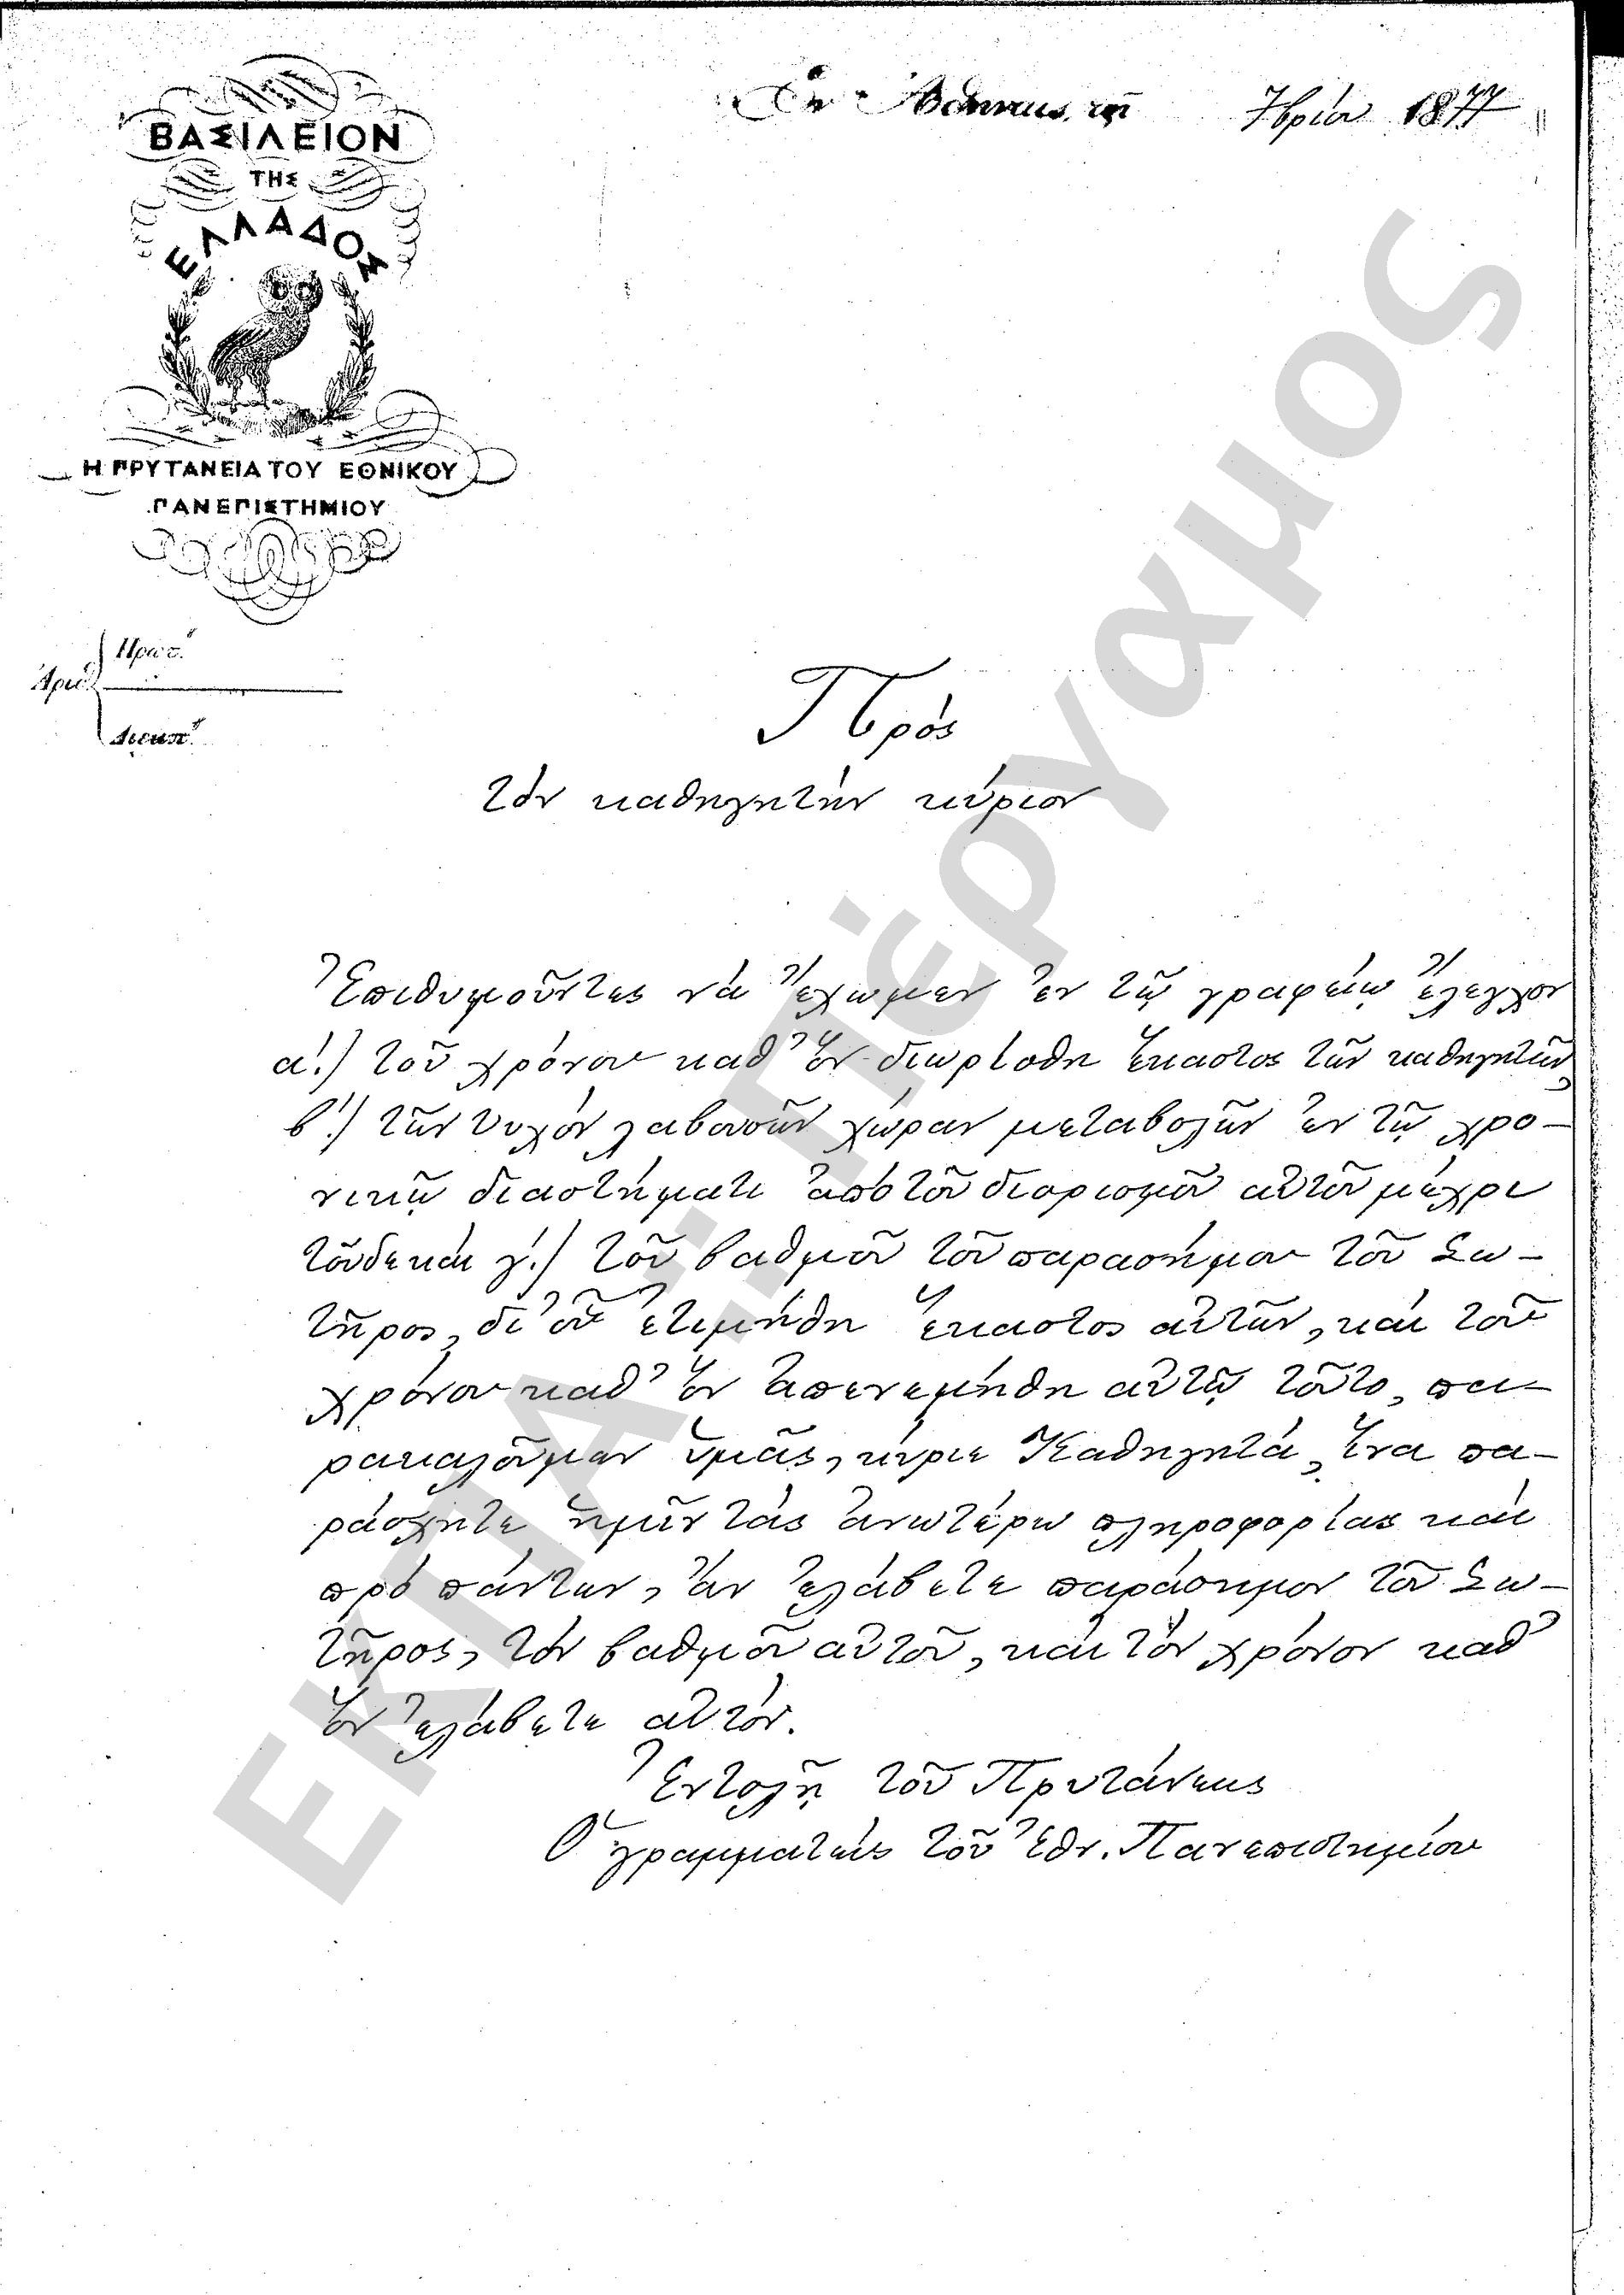 ΒΑΣΙΛΕΙΟΝ
ΤΗΣ
ΕΛΛΑΔΟΣ
Η ΠΡΥΤΑΝΕΙΑ ΤΟΥ ΕΘΝΙΚΟΥ
ΠΑΝΕΠΙΣΤΗΜΙΟΥ
Ἐν Ἀθήναις τῇ 7βρίου 1877
Πρωτ.
Ἀριθ.
Διεκπ.
Πρὸς
τὸν καθηγητὴν κύριον
Ἐπιθυμοῦντες νὰ ἔχωμεν ἐν τῷ γραφείῳ ἔλεγχον
α΄.) τοῦ χρόνου καθ' ὃν διωρίσθη ἕκαστος τῶν καθηγητῶν,
β΄.) τῶν τυχὸν λαβουσῶν χώραν μεταβολῶν ἐν τῷ χρο–
νικῷ διαστήματι ἀπὸ τοῦ διορισμοῦ αὐτοῦ μέχρι
τοῦδε καὶ γ΄.) τοῦ βαθμοῦ τοῦ παρασήμου τοῦ Σω–
τῆρος, δι' οὗ ἐτιμήθη ἕκαστος αὐτῶν, καὶ τοῦ
χρόνου καθ' ὃν ἀπενεμήθη αὐτῷ τοῦτο, πα–
ρακαλοῦμεν ὑμᾶς, κύριε Καθηγητά, ἵνα πα–
ράσχητε ἡμῖν τὰς ἀνωτέρω πληροφορίας καὶ
πρὸ πάντων, ἂν ἐλάβετε παράσημον τοῦ Σω–
τῆρος, τὸν βαθμὸν αὐτοῦ, καὶ τὸν χρόνον καθ'
ὃν ἐλάβετε αὐτόν.
Ἐντολῇ τοῦ Πρυτάνεως
Ὁ γραμματεὺς τοῦ Ἐθν. Πανεπιστημίου
ΕΚΠΑ - Πέργαμος